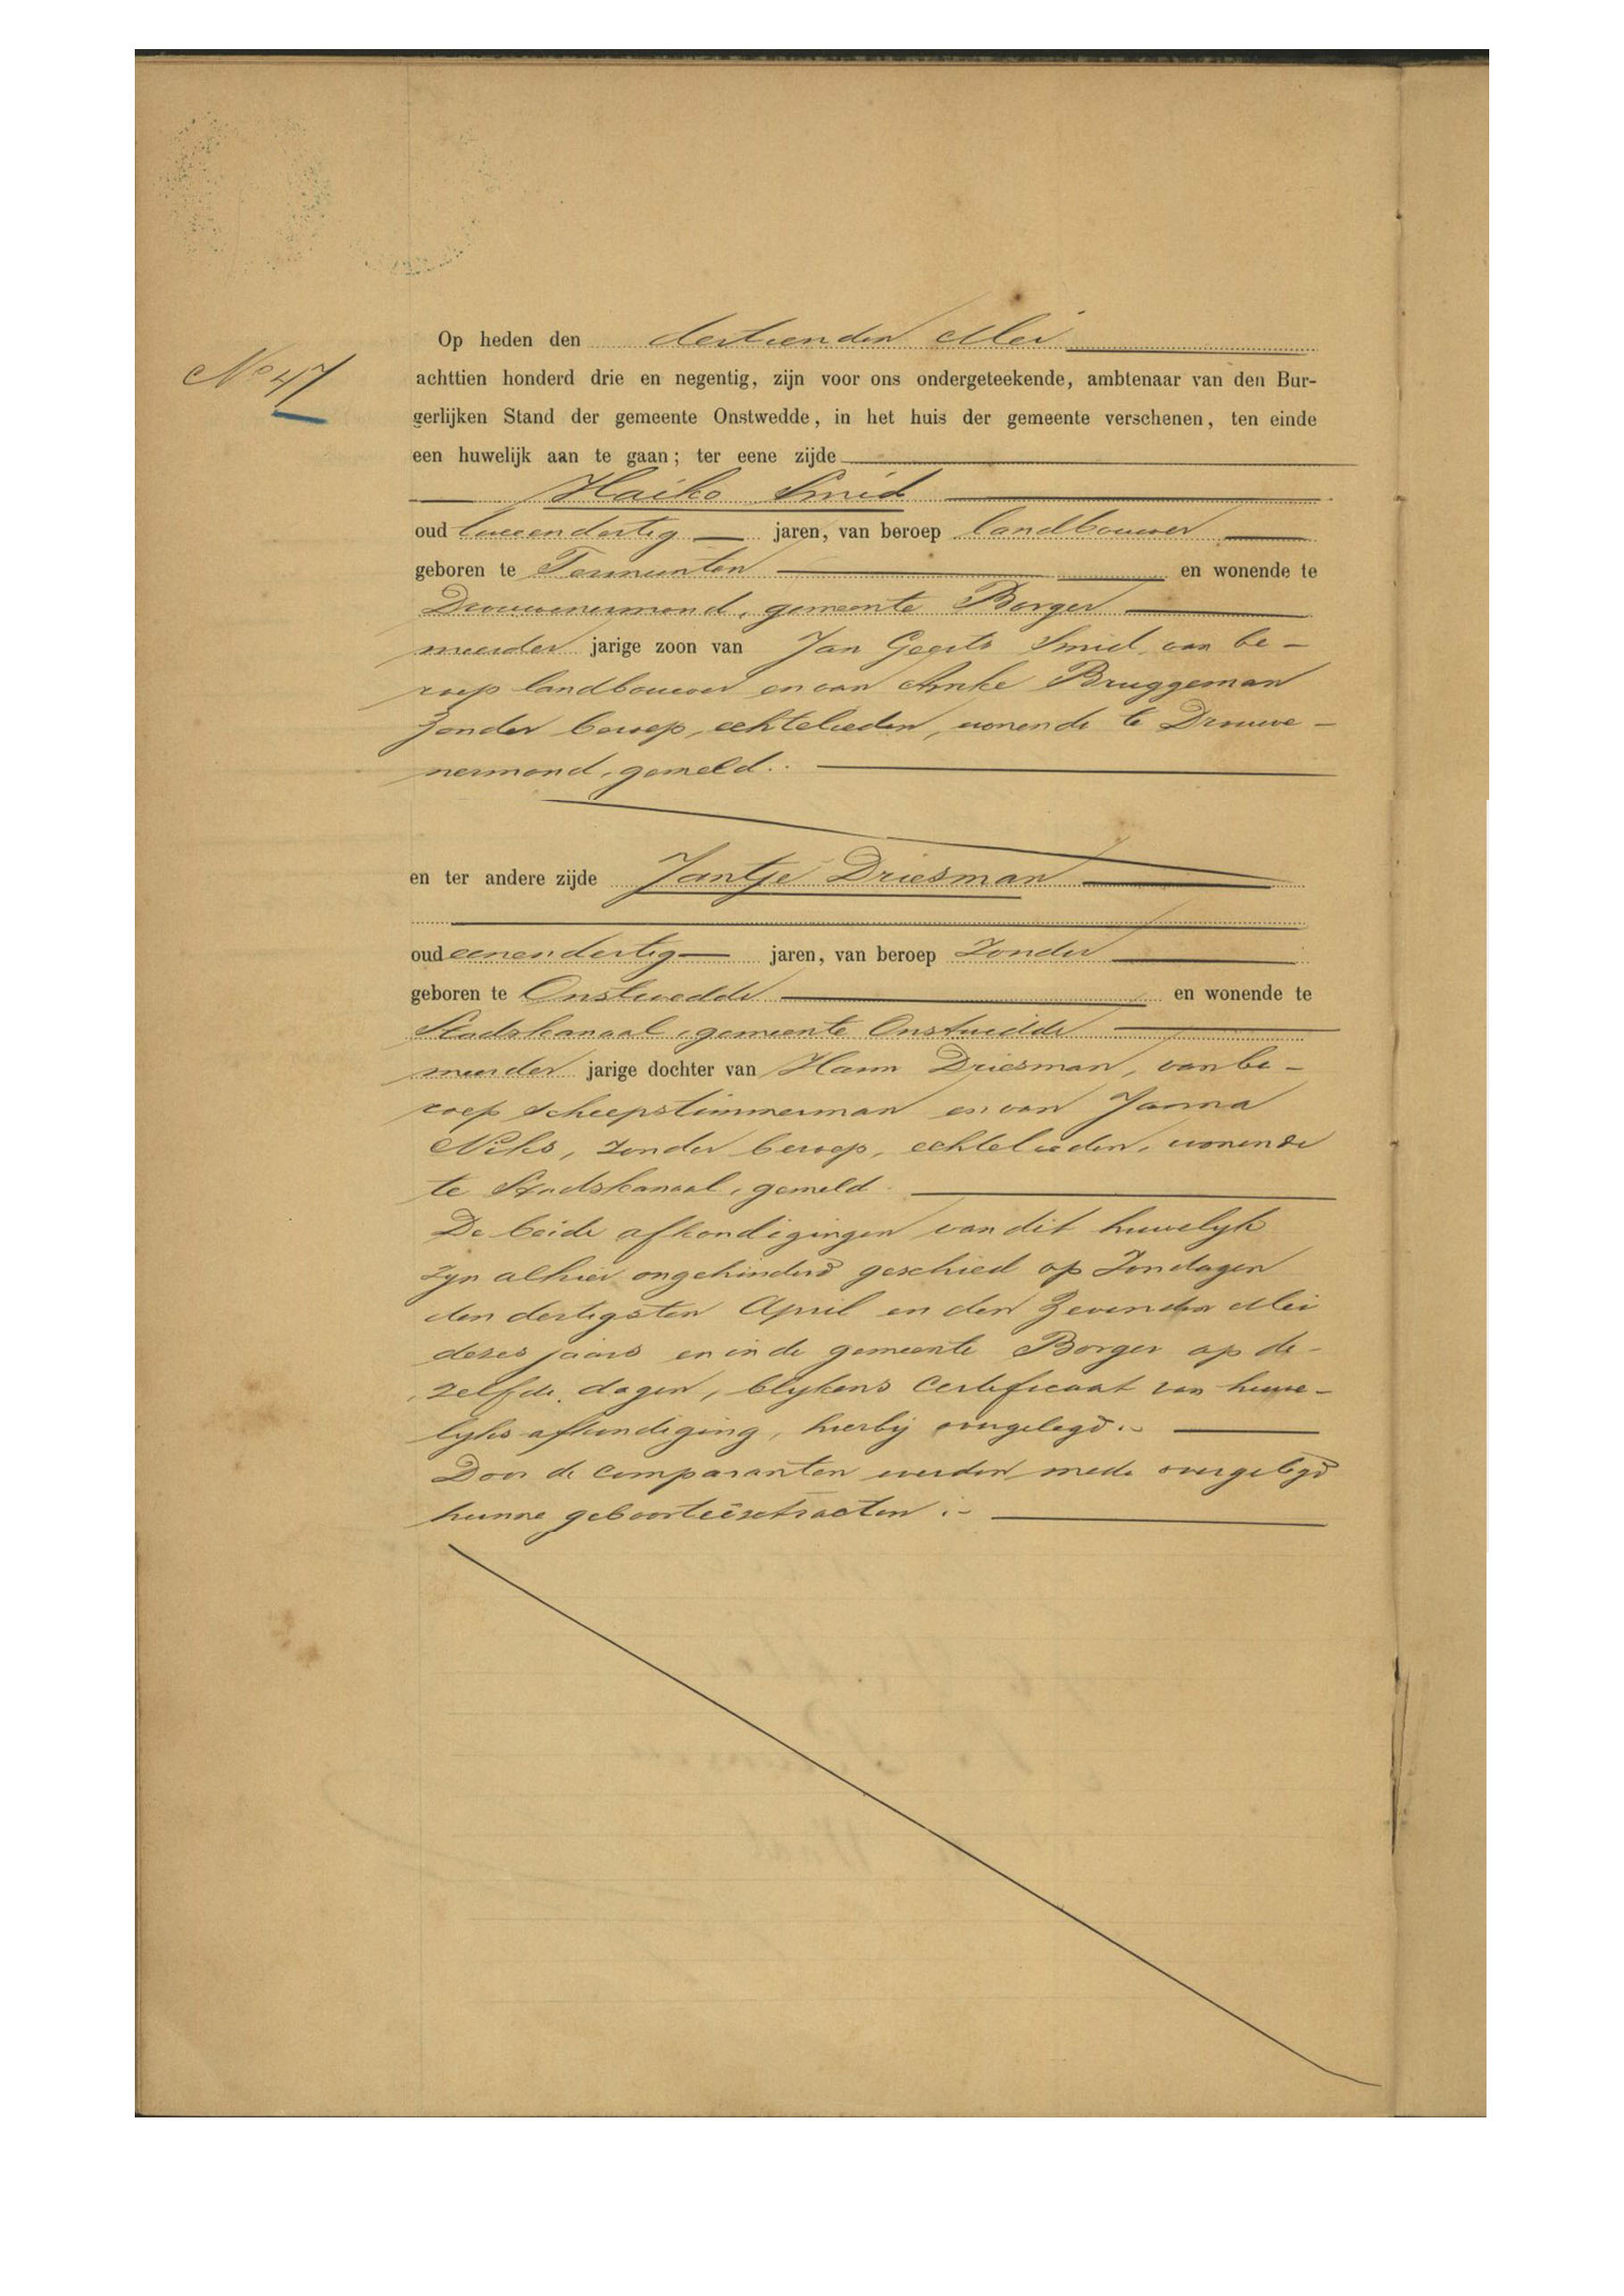 No 47
Op heden den dertienden Mei
achttien honderd drie en negentig, zijn voor ons ondergeteekende, ambtenaar van den Bur-
gerlijken Stand der gemeente Onstwedde, in het huis der gemeente verschenen, ten einde
een huwelijk aan te gaan; ter eene zijde
Haiko Smid
oud tweeendertig jaren, van beroep landbouwer
geboren te Termunten en wonende te
Drouwenermond, gemeente Borger
meerder jarige zoon van Jan Geerts Smid, van be-
roep landbouwer en van Anke Bruggeman
zonder beroep, echtelieden, wonende te Drouwe-
nermond, gemeld.
en ter andere zijde Jantje Driesman
oud eenendertig jaren, van beroep Zonder
geboren te Onstwedde en wonende te
Stadskanaal, gemeente Onstwedde
meerder jarige dochter van Harm Driesman, van be-
roep scheepstimmerman en van Janna
Niks, zonder beroep, echtelieden, wonende
te Stadskanaal, gemeld
De beide afkondigingen van dit huwelyk
zyn alhier ongehinderd geschied op Zondagen
den dertigsten April en den zevenden Mei
dezes jaars en in de gemeente Borger op de-
zelfde dagen, blykens Certificaat van huwe-
lyks afkondiging, hierby overgelegd.
Door de comparanten werden mede overgelegd
hunne geboorteëxtracten :-